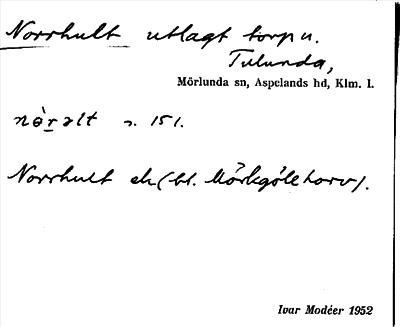 Norrhult utlagt torp u.
Tulunda,
Mörlunda sn, Aspelands hd, Klm. l.
nòralt s. 151.
Norrhult ek (bl. Mörkgölehorv).
Ivar Modéer 1952